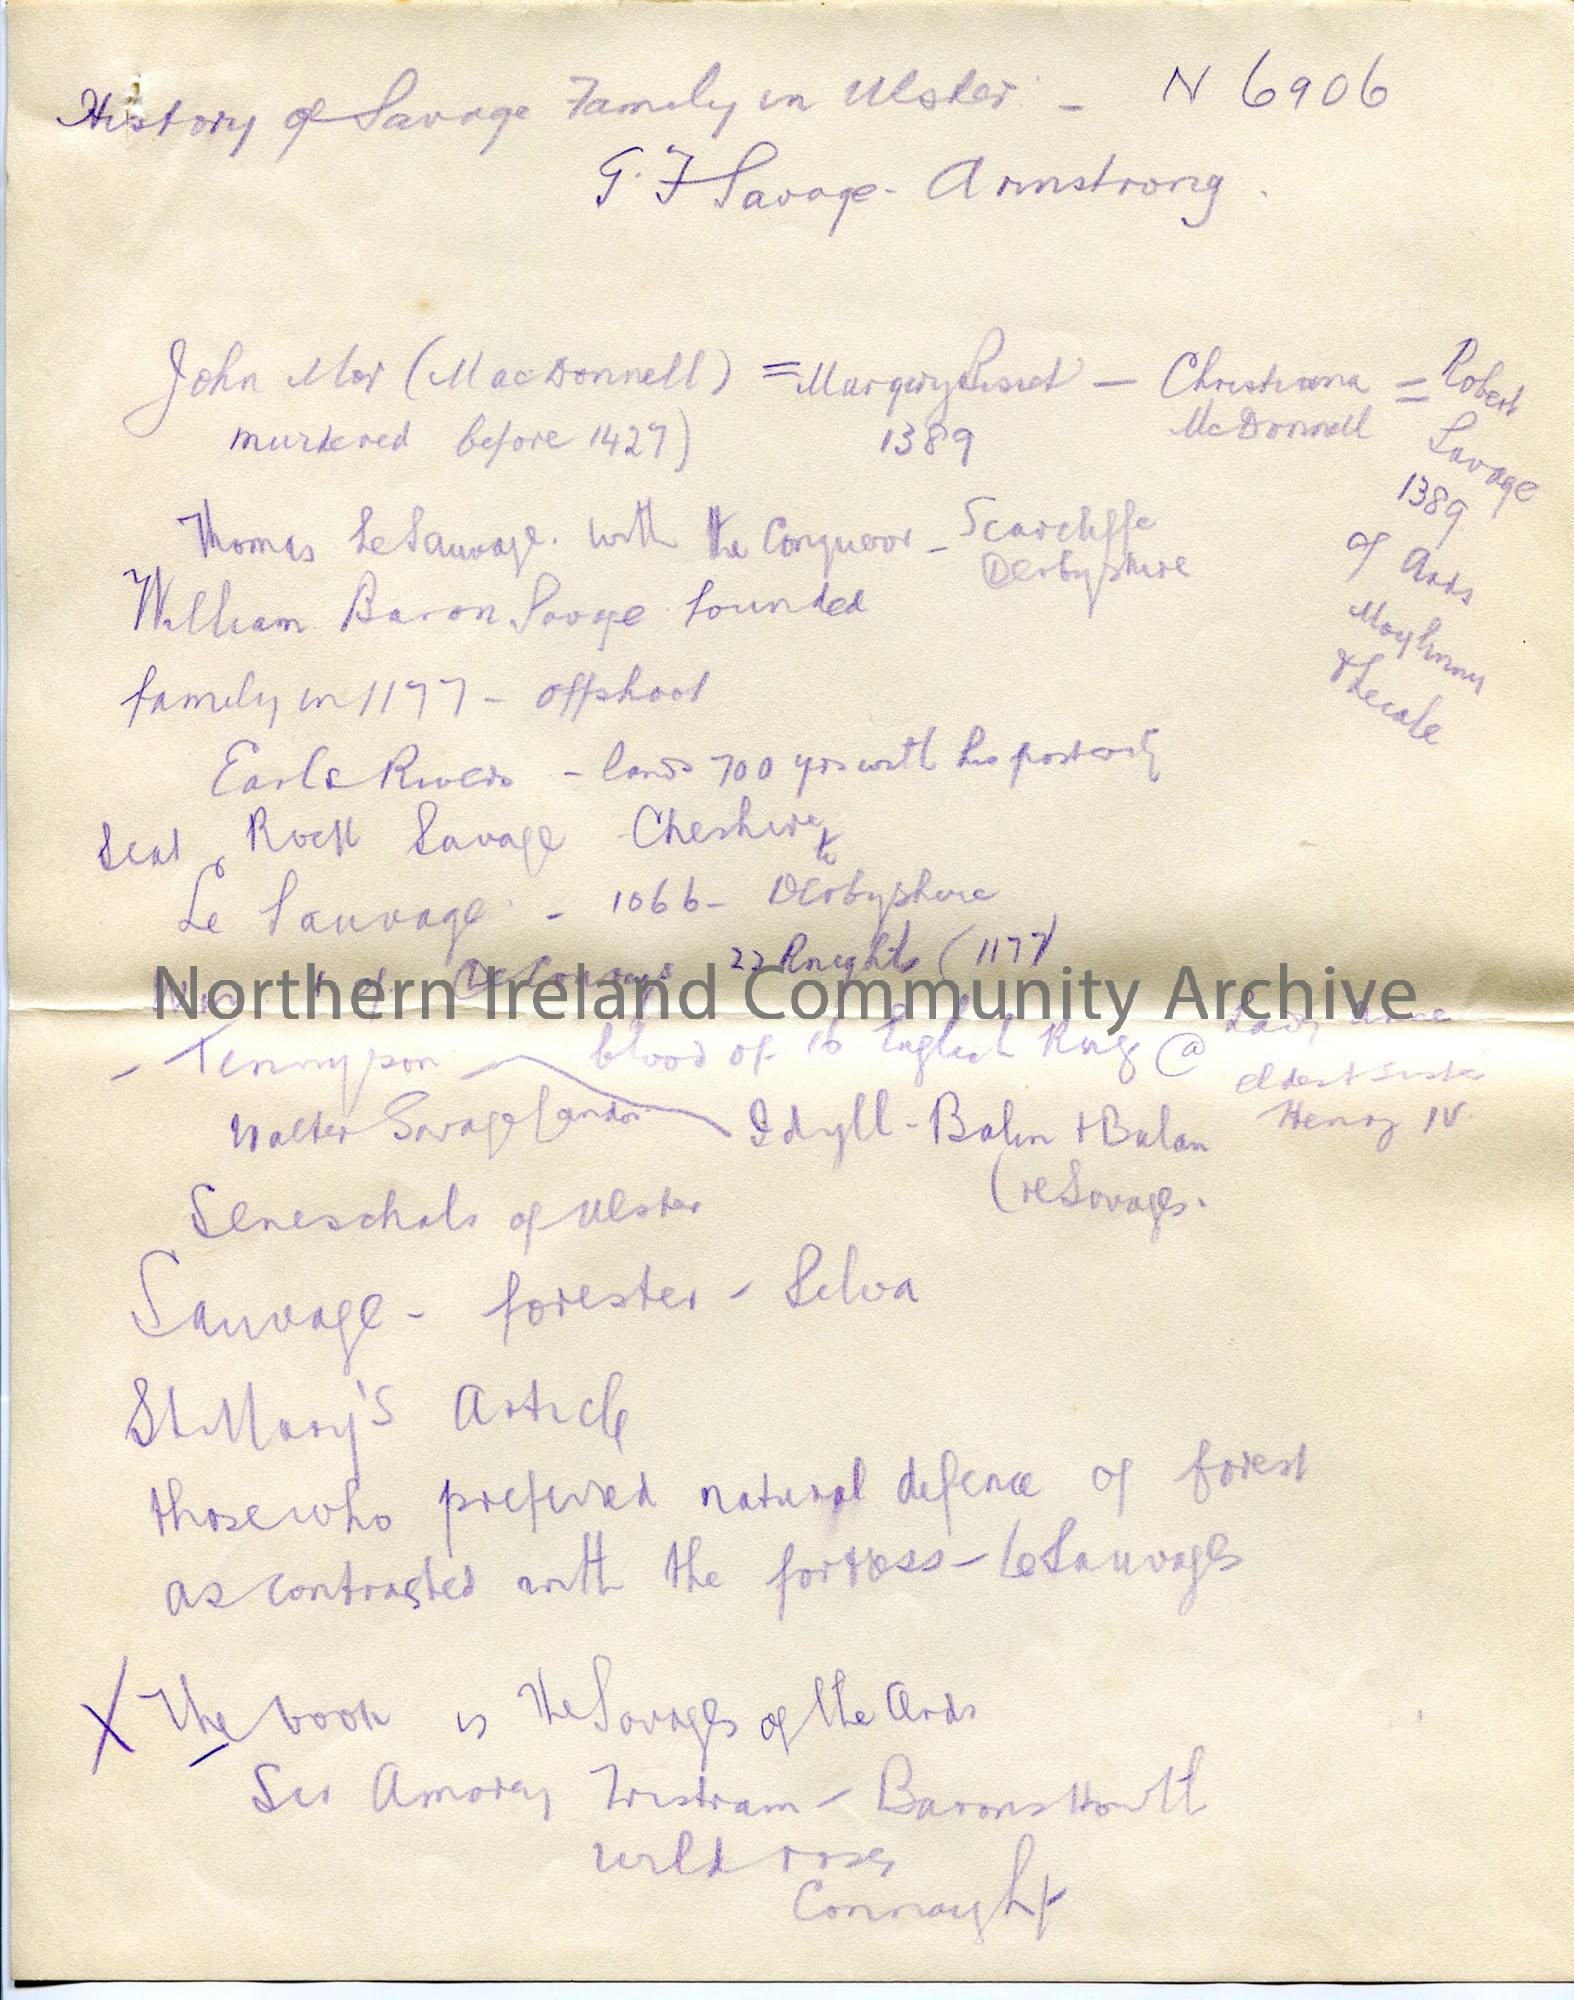 History of Savage Family in Ulster - N 6906
G. F Savage-Armstrong.
John Mor (MacDonnell) = Margery Bisset - Christiana = Robert
murdered before 1427) 1389 McDonnell Savage
1389
of Ards
&Lecale
Thomas LeSauvage. with the Conqueror - Scarcliffe
Derbyshire
William Baron Savage founded
family in 1177 - offshoot
Earls Rivers - lands 700 yrs with his posterity
Seat Rock Savage Cheshire
Le Sauvage - 1066 - Derbyshire
22 Knights (1177)
Northern Ireland Community Archive
- Tennyson - blood of 16 English Kings @ Lady Anne
eldest sister
Henry IV
Walter Savage Landor Idyll - Balin + Balan
(re Savages.
Seneschals of Ulster
Sauvage - forester - Selva
St Mary's Article
those who preferred natural defence of forest
as contrasted with the fortress - le Sauvages
X The book is The Savages of the Ards
Sir Amorey Tristram - Barons Howth
wild roses
Connaught